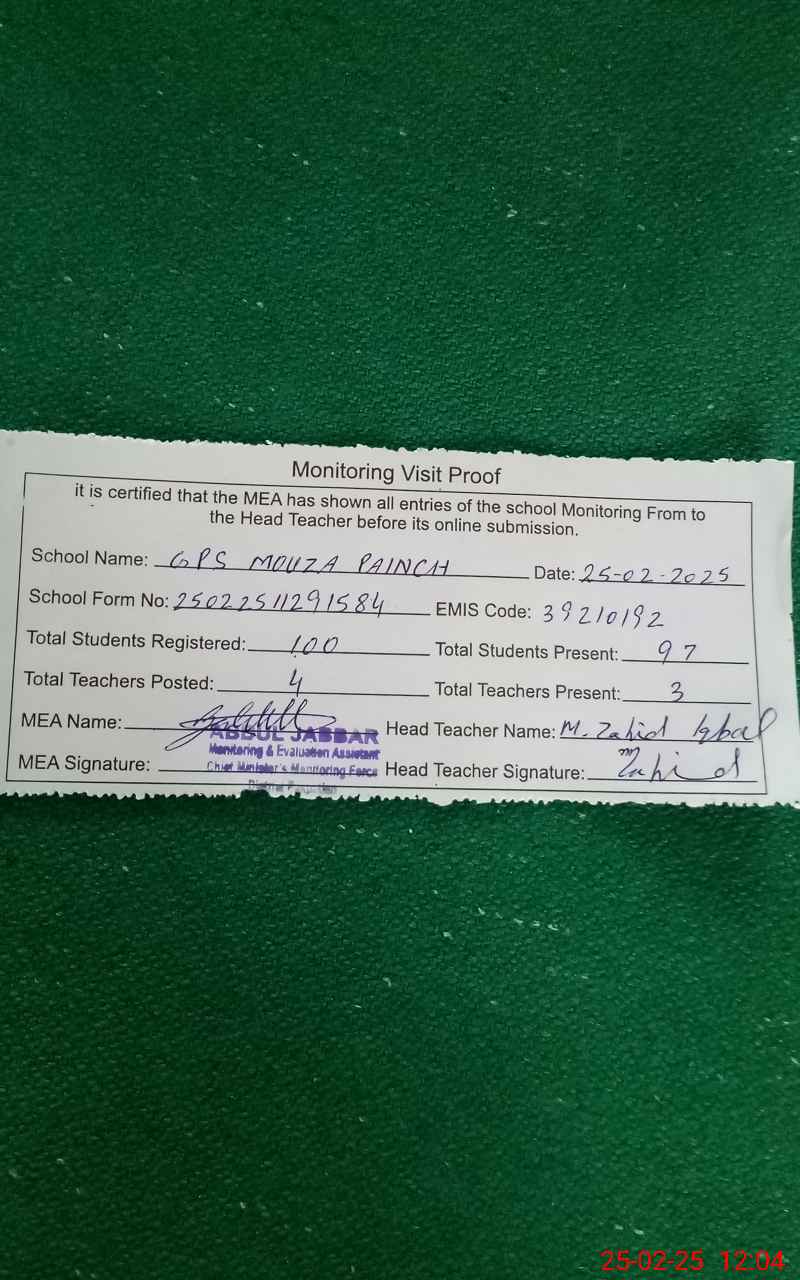 Monitoring Visit Proof
it is certified that the MEA has shown all entries of the school Monitoring From to
the Head Teacher before its online submission.
School Name: GPS MOUZA PAINCH Date: 25-02-2025
School Form No: 25022511291584 EMIS Code: 39210192
Total Students Registered: 100 Total Students Present: 97
Total Teachers Posted: 4 Total Teachers Present: 3
MEA Name: ABDUL JABBAR Head Teacher Name: M. Zahid Iqbal
Monitoring & Evaluation Assistant
MEA Signature: Chief Minister's Monitoring Force Head Teacher Signature: Zahid
25-02-25 12:04